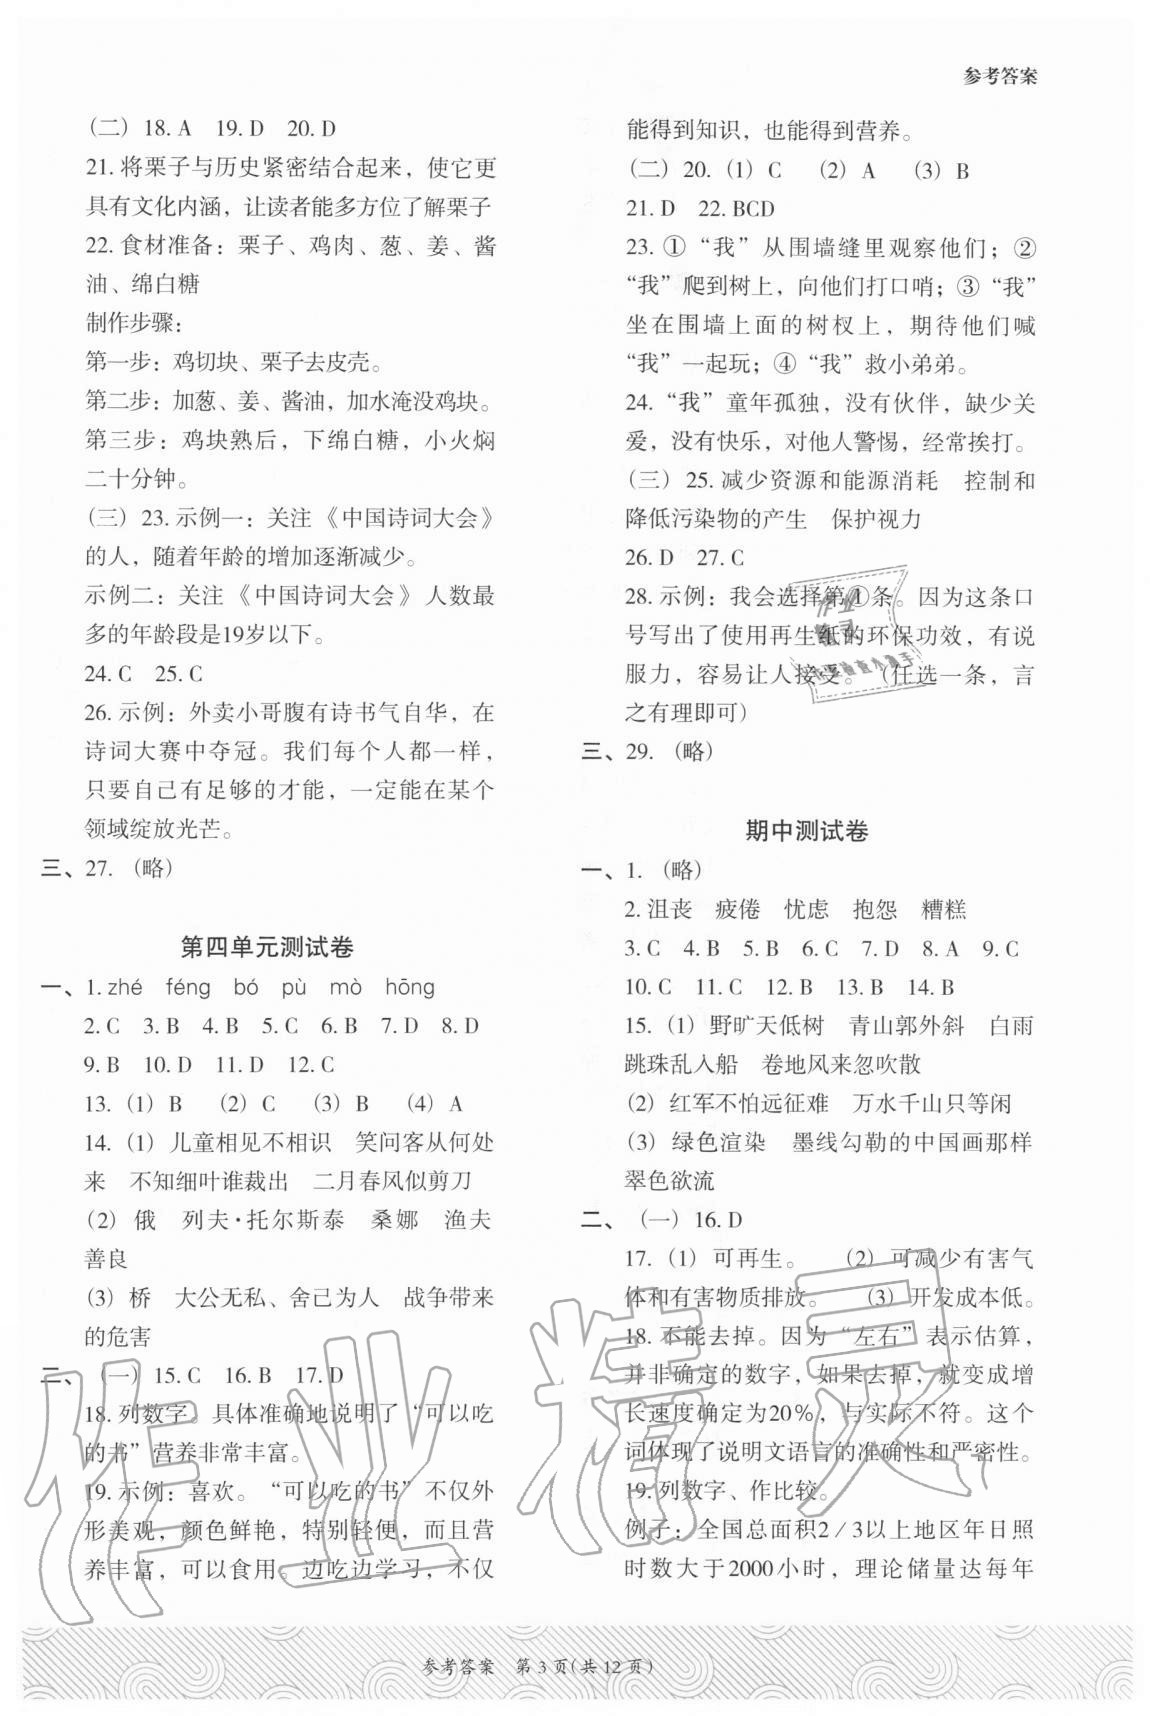 参考答案
（二）18. A　19. D　20. D
21. 将栗子与历史紧密结合起来，使它更
具有文化内涵，让读者能多方位了解栗子
22. 食材准备：栗子、鸡肉、葱、姜、酱
油、绵白糖
制作步骤：
第一步：鸡切块、栗子去皮壳。
第二步：加葱、姜、酱油，加水淹没鸡块。
第三步：鸡块熟后，下绵白糖，小火焖
二十分钟。
（三）23. 示例一：关注《中国诗词大会》
的人，随着年龄的增加逐渐减少。
示例二：关注《中国诗词大会》人数最
多的年龄段是19岁以下。
24. C　25. C
26. 示例：外卖小哥腹有诗书气自华，在
诗词大赛中夺冠。我们每个人都一样，
只要自己有足够的才能，一定能在某个
领域绽放光芒。
三、27. （略）
第四单元测试卷
一、1. zhé　féng　bó　pù　mò　hōng
2. C　3. B　4. B　5. C　6. B　7. D　8. D
9. B　10. D　11. D　12. C
13.（1）B　（2）C　（3）B　（4）A
14.（1）儿童相见不相识　笑问客从何处
来　不知细叶谁裁出　二月春风似剪刀
（2）俄　列夫·托尔斯泰　桑娜　渔夫
善良
（3）桥　大公无私、舍己为人　战争带来
的危害
二、（一）15. C　16. B　17. D
18. 列数字，具体准确地说明了“可以吃
的书”营养非常丰富。
19. 示例：喜欢。“可以吃的书”不仅外
形美观，颜色鲜艳，特别轻便，而且营
养丰富，可以食用。边吃边学习，不仅
能得到知识，也能得到营养。
（二）20.（1）C　（2）A　（3）B
21. D　22. BCD
23. ①“我”从围墙缝里观察他们；②
“我”爬到树上，向他们打口哨；③“我”
坐在围墙上面的树杈上，期待他们喊
“我”一起玩；④“我”救小弟弟。
24.“我”童年孤独，没有伙伴，缺少关
爱，没有快乐，对他人警惕，经常挨打。
（三）25. 减少资源和能源消耗　控制和
降低污染物的产生　保护视力
26. D　27. C
28. 示例：我会选择第①条。因为这条口
号写出了使用再生纸的环保功效，有说
服力，容易让人接受。（任选一条，言
之有理即可）
三、29. （略）
期中测试卷
一、1. （略）
2. 沮丧　疲倦　忧虑　抱怨　糟糕
3. C　4. B　5. C　6. C　7. D　8. A　9. C
10. C　11. C　12. B　13. B　14. B
15.（1）野旷天低树　青山郭外斜　白雨
跳珠乱入船　卷地风来忽吹散
（2）红军不怕远征难　万水千山只等闲
（3）绿色渲染　墨线勾勒的中国画那样
翠色欲流
二、（一）16. D
17.（1）可再生。　（2）可减少有害气
体和有害物质排放。　（3）开发成本低。
18. 不能去掉。因为“左右”表示估算，
并非确定的数字，如果去掉，就变成增
长速度确定为20%，与实际不符。这个
词体现了说明文语言的准确性和严密性。
19. 列数字、作比较。
例子：全国总面积2/3以上地区年日照
时数大于2000小时，理论储量达每年
参考答案　第3页（共12页）
作业精灵